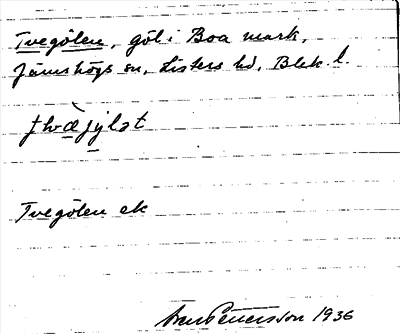 Tvegölen, göl i Boa mark,
Jämshögs sn, Listers hd, Blek. l.
Tvegölen ek
Pettersson 1936